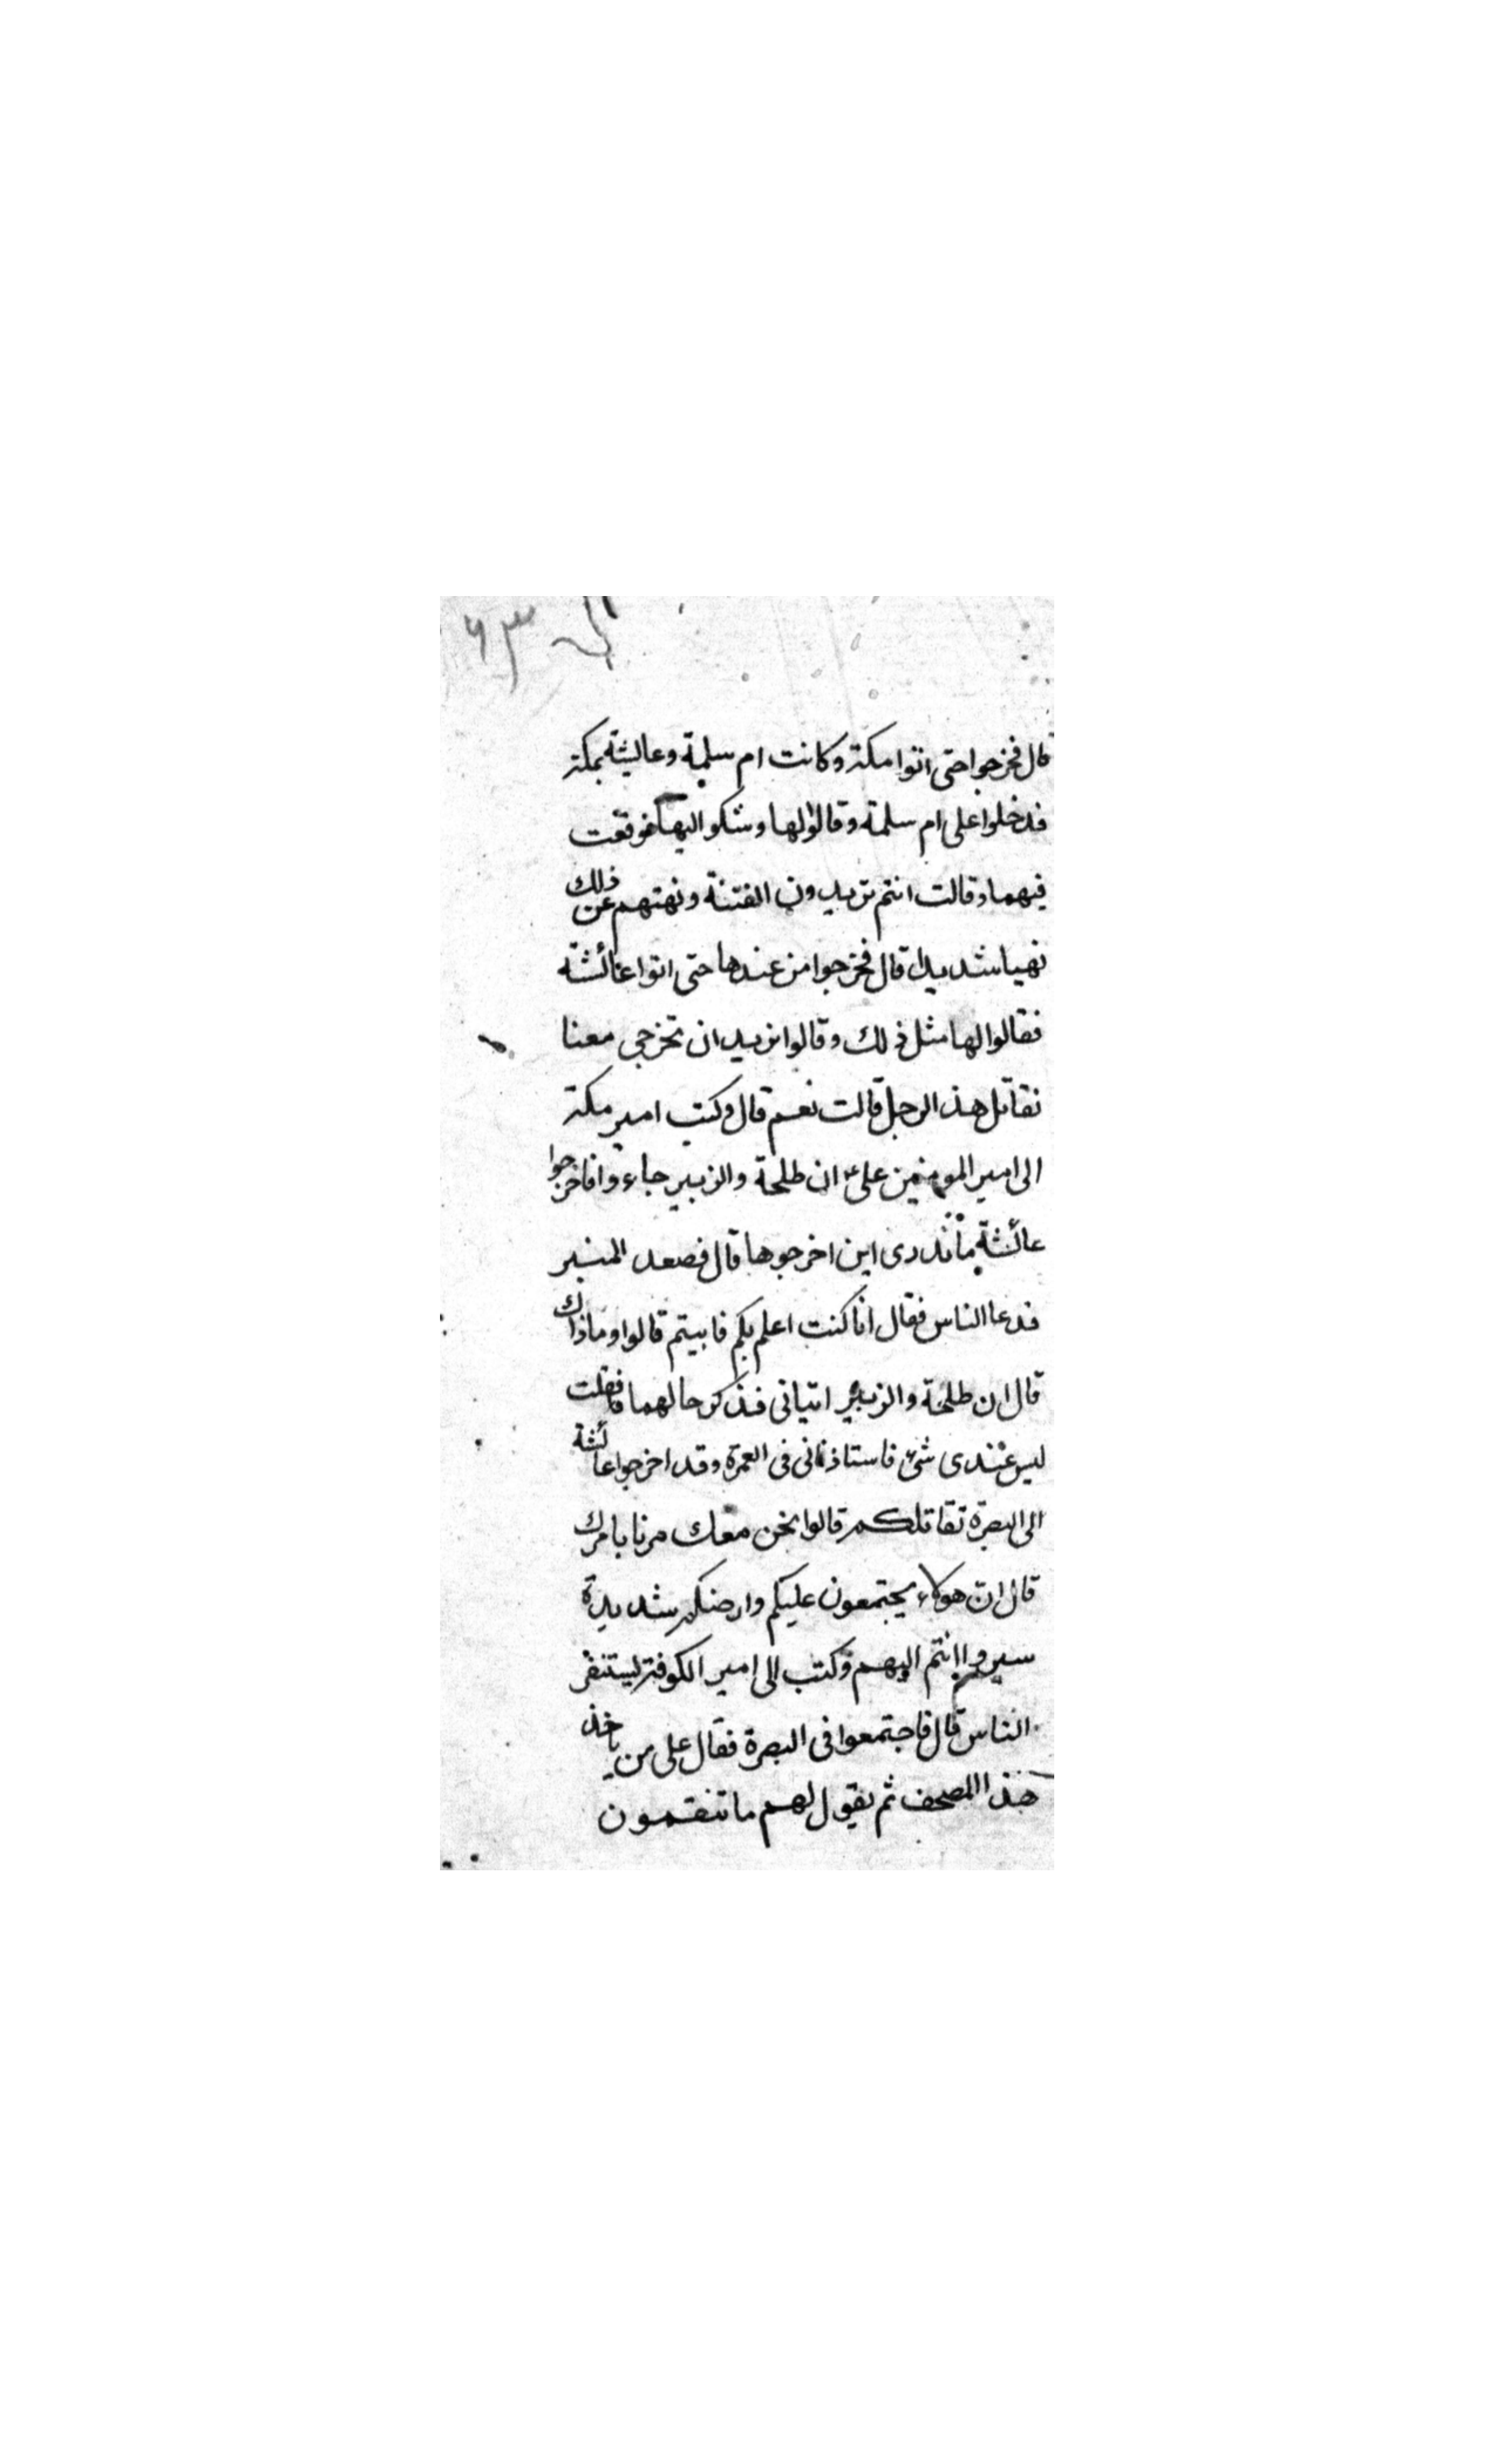 ٦٣
قال فخرجوا حتى اتوا مكة وكانت ام سلمة وعايشة بمكة
فدخلوا على ام سلمة وقالوا لها وشكوا اليها فوقعت
فيهما وقالت انتم تريدون الفتنة ونهتهم عن ذلك
نهيا شديدا قال فخرجوا من عندها حتى اتوا عائشة
فقالوا لها مثل ذلك وقالوا نريد ان تخرجي معنا
نقاتل هذ الرجل قالت نعم قال وكتب امير مكة
الى امير المومنين على ان طلحة والزبير جاءوا فاخرجوا
عائشة ما ندرى اين اخرجوها قال فصعد المنبر
فدعا الناس فقال انا كنت اعلم بكم فابيتم قالوا وما ذاك
قال ان طلحة والزبير اتيانى فذكر حالهما فقلت
ليس عندى شئ فاستاذنانى فى العمرة وقد اخرجوا عائشة
الى البصرة تقاتلكم قالوا نحن معك مرنا بامرك
قال ان هولاء يجتمعون عليكم وارضكم شديدة
سيروا انتم اليهم وكتب الى امير الكوفة ليستنفر
الناس قال فاجتمعوا فى البصرة فقال على من ياخذ
هذا المصحف ثم يقول لهم ما تنقمون